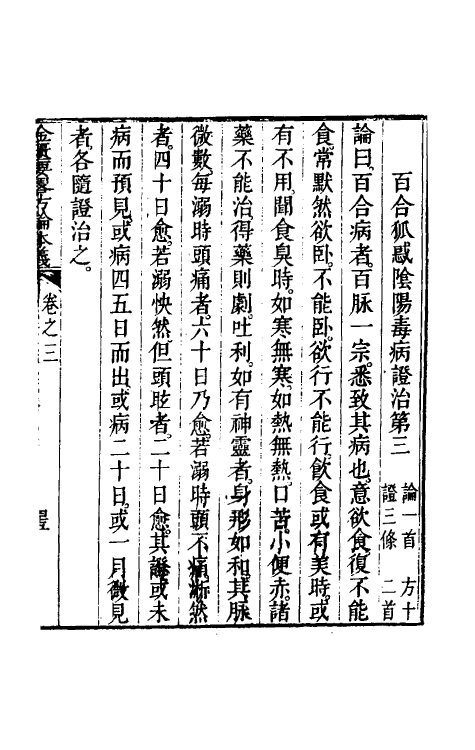 百合狐惑陰陽毒病證治第三
論一首 證三條 方十二首
論曰。百合病者。百脉一宗。悉致其病也。意欲食。復不能
食。常默然。欲卧。不能卧。欲行不能行。飲食或有美時。或
有不用。聞食臭時。如寒無寒。如熱無熱。口苦。小便赤。諸
藥不能治。得藥則劇。吐利。如有神靈者。身形如和。其脉
微數。每溺時頭痛者。六十日乃愈。若溺時頭不痛。淅然
者。四十日愈。若溺快然。但頭眩者。二十日愈。其證或未
病而預見。或病四五日而出。或病二十日。或一月微見
者。各隨證治之。
金匱要畧方論本義
卷之三